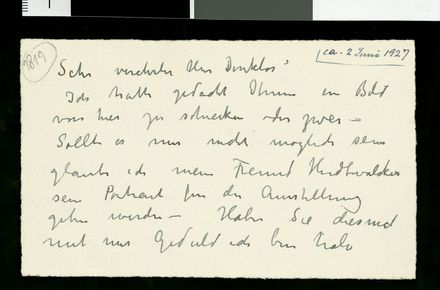 ca. 2 Juni 1927
2819
Sehr verehrter Herr Dinklos!
Ich hatte gedacht Ihnen ein Bild
von hier zu schicken oder zwei –
Sollte es mir nicht möglich sein
glaube ich mein Freund
sein Portrait für die Ausstellung
geben werde – Haben Sie diesmal
mit mir Geduld ich bin halb